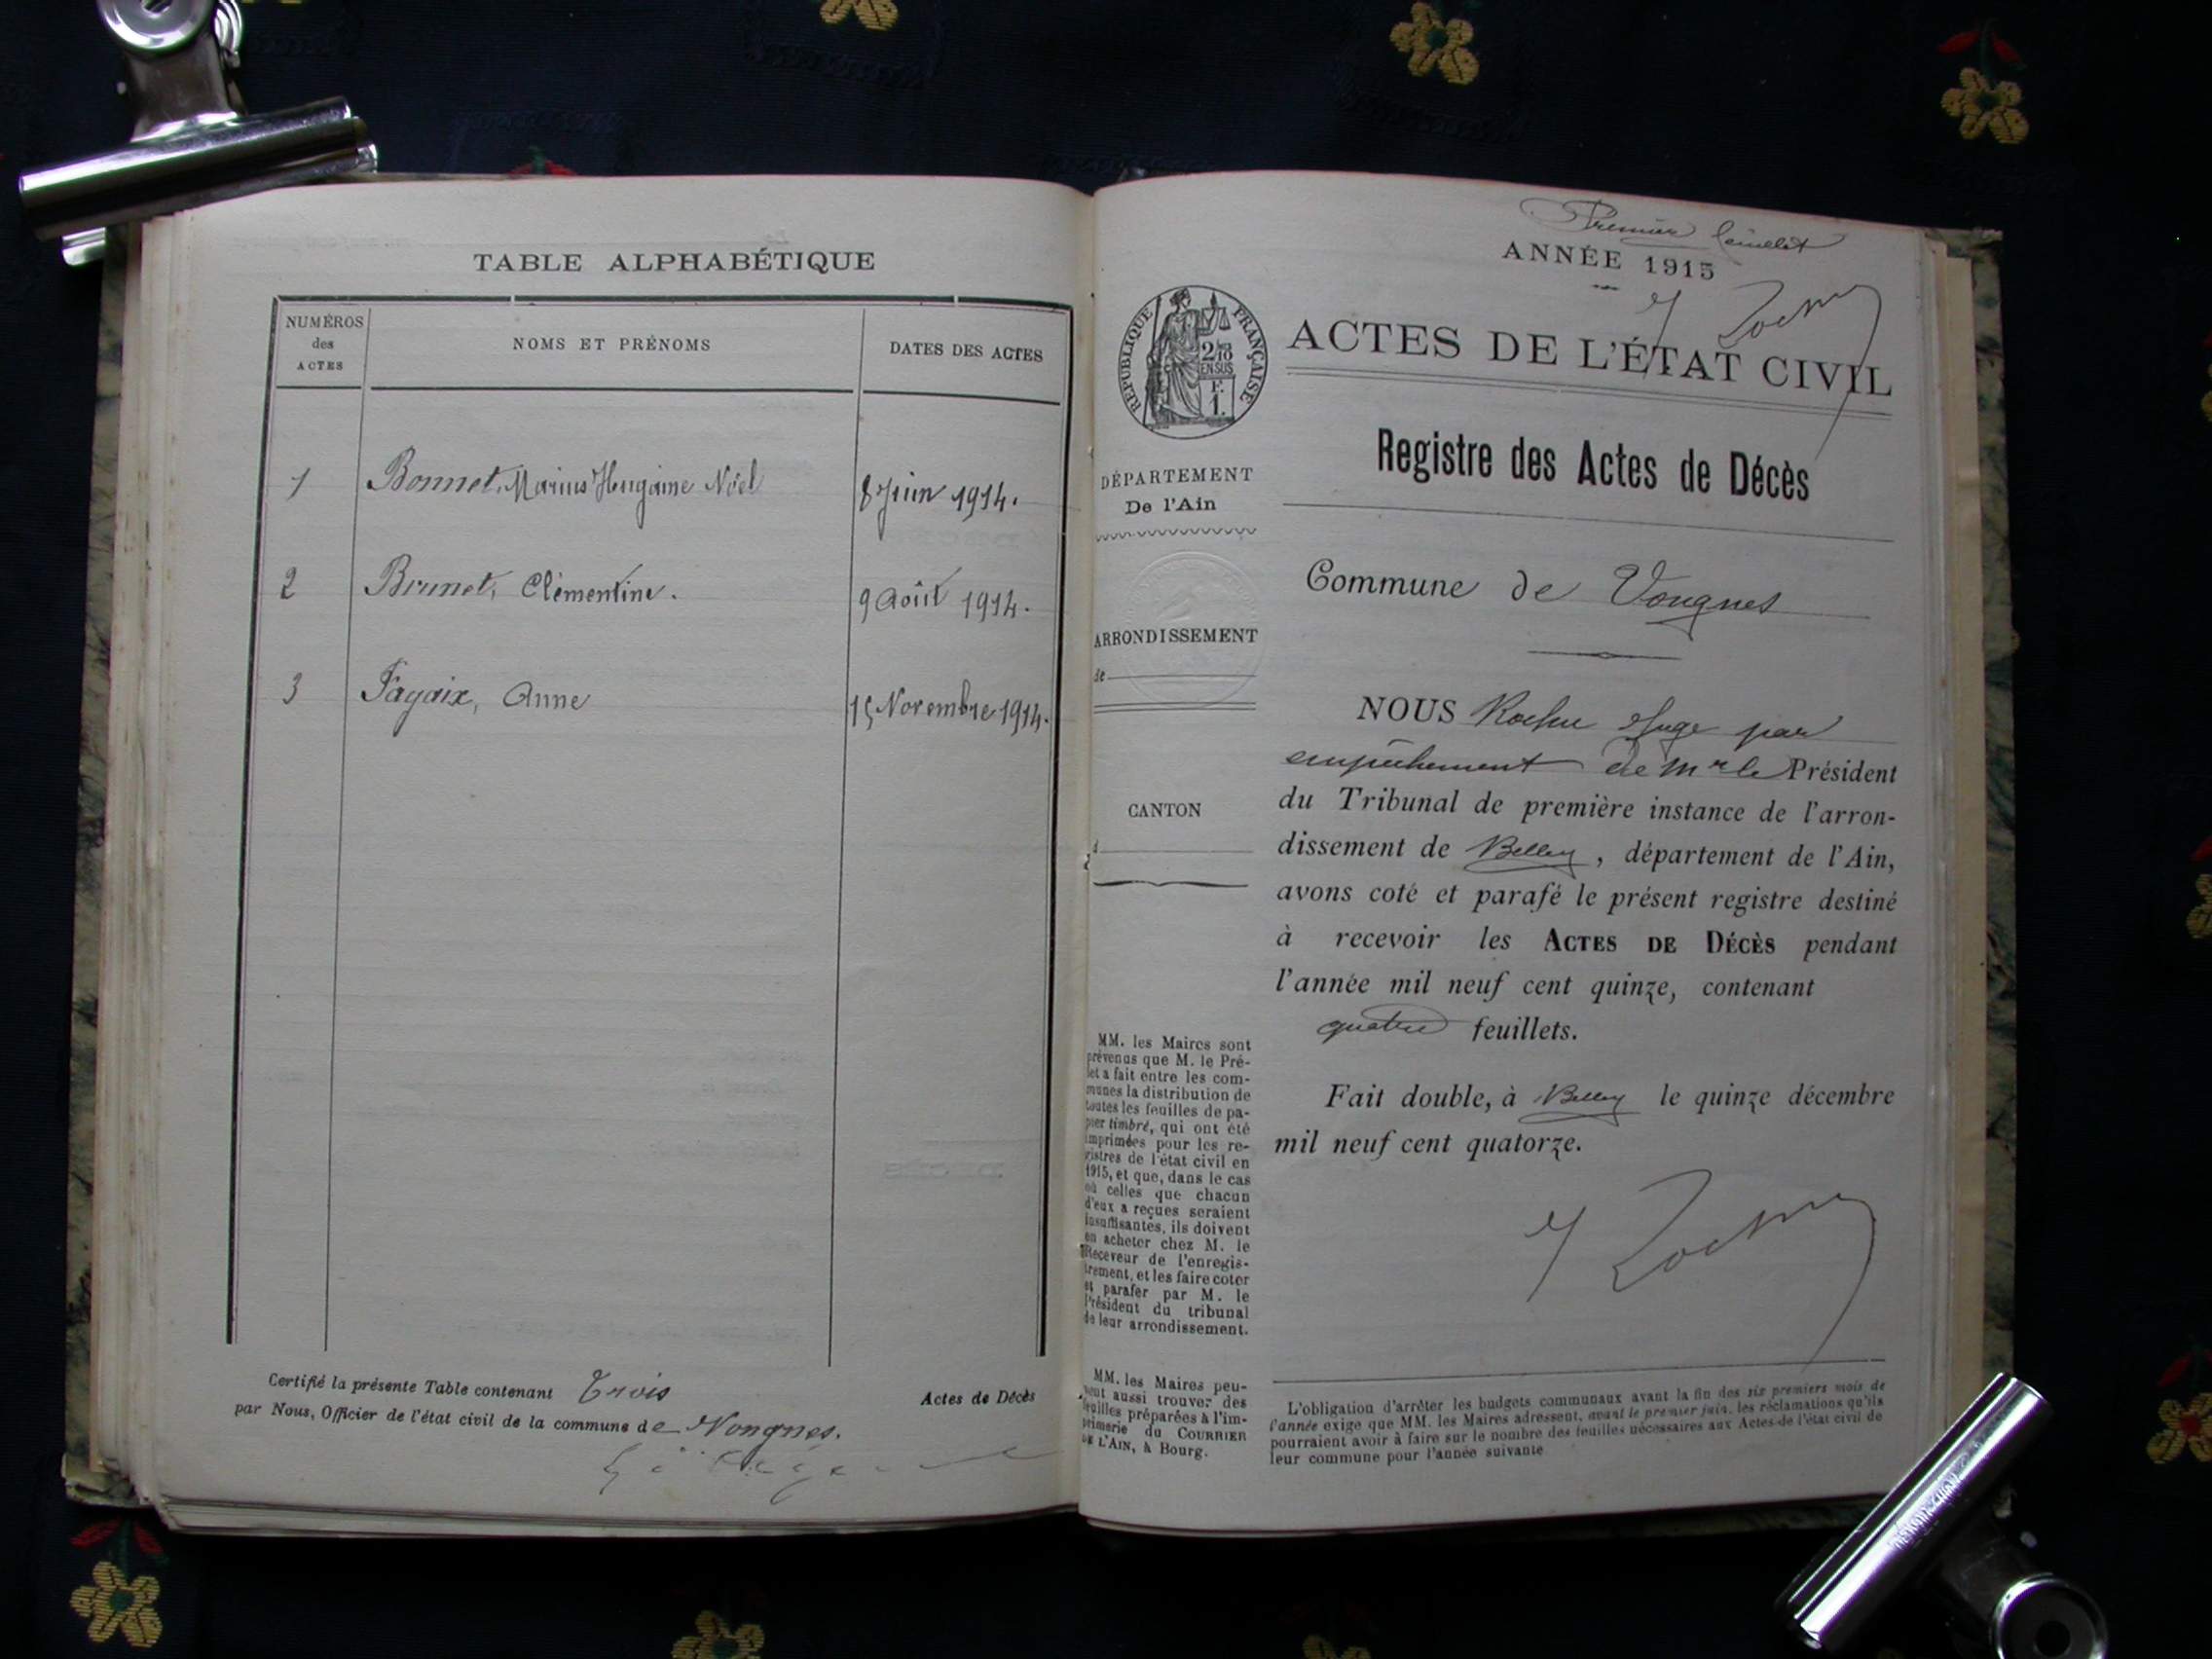 TABLE ALPHABÉTIQUE
NUMÉROS
des
ACTES
NOMS ET PRÉNOMS
DATES DES ACTES
1 Bonnet, Marius Heugaine Noël 8 Juin 1914.
2 Brunet, Clémentine. 9 Août 1914.
3 Fayaix, Anne 15 Novembre 1914.
Certifié la présente Table contenant Trois Actes de Décès
par Nous, Officier de l'état civil de la commune de Vongnes.
Premier feuillet
ANNÉE 1915
RÉPUBLIQUE FRANÇAISE
2/10
EN SUS
F.
1.
ACTES DE L'ÉTAT CIVIL
Registre des Actes de Décès
DÉPARTEMENT
De l'Ain
ARRONDISSEMENT
de
CANTON
d
Commune de Vongnes
NOUS Juge par
empêchement de Mr le Président
du Tribunal de première instance de l'arron-
dissement de Belley, département de l'Ain,
avons coté et parafé le présent registre destiné
à recevoir les ACTES DE DÉCÈS pendant
l'année mil neuf cent quinze, contenant
quatre feuillets.
Fait double, à Belley le quinze décembre
mil neuf cent quatorze.
MM. les Maires sont
prévenus que M. le Pré-
fet a fait entre les com-
munes la distribution de
toutes les feuilles de pa-
pier timbré, qui ont été
imprimées pour les re-
gistres de l'état civil en
1915, et que, dans le cas
où celles que chacun
d'eux a reçues seraient
insuffisantes, ils doivent
en acheter chez M. le
Receveur de l'enregis-
trement, et les faire coter
et parafer par M. le
Président du tribunal
de leur arrondissement.
MM. les Maires peu-
vent aussi trouver des
feuilles préparées à l'im-
primerie du COURRIER
DE L'AIN, à Bourg.
L'obligation d'arrêter les budgets communaux avant la fin des six premiers mois de
l'année exige que MM. les Maires adressent, avant le premier juin, les réclamations qu'ils
pourraient avoir à faire sur le nombre des feuilles nécessaires aux Actes de l'état civil de
leur commune pour l'année suivante